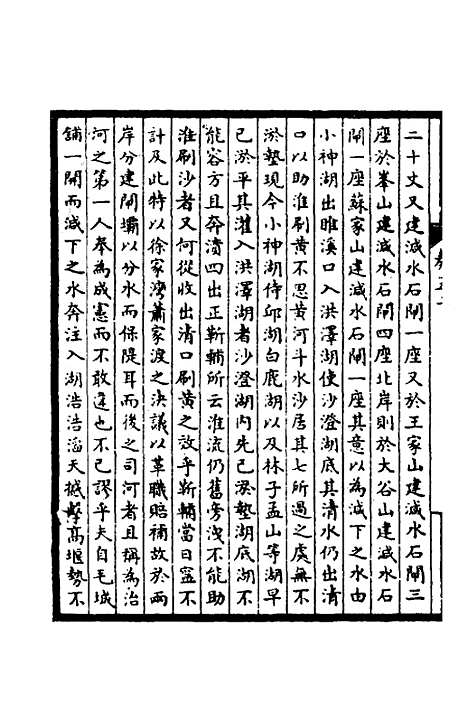 二十丈又建減水石閘一座又於王家山建減水石閘三
座於峯山建減水石閘四座北岸則於大谷山建減水石
閘一座蘇家山建減水石閘一座其意以為減下之水由
小神湖出睢溪口入洪澤湖使沙澄湖底其清水仍出清
口以助淮刷黃不思黃河斗水沙居其七所過之處無不
淤墊現今小神湖侍邱湖白鹿湖以及林子孟山等湖早
已淤平其灌入洪澤湖者沙澄湖內先已淤墊湖底湖不
能容方且奔潰四出正靳輔所云淮流仍舊旁洩不能助
淮刷沙者又何從收出清口刷黃之效乎靳輔當日寧不
計及此特以徐家灣蕭家渡之決議以革職賠補故於兩
岸分建閘壩以分水而保隄耳而後之司河者且稱為治
河之第一人奉為成憲而不敢違也不已謬乎夫自毛城
舖一開而減下之水奔注入湖浩浩滔天撼擊高堰勢不